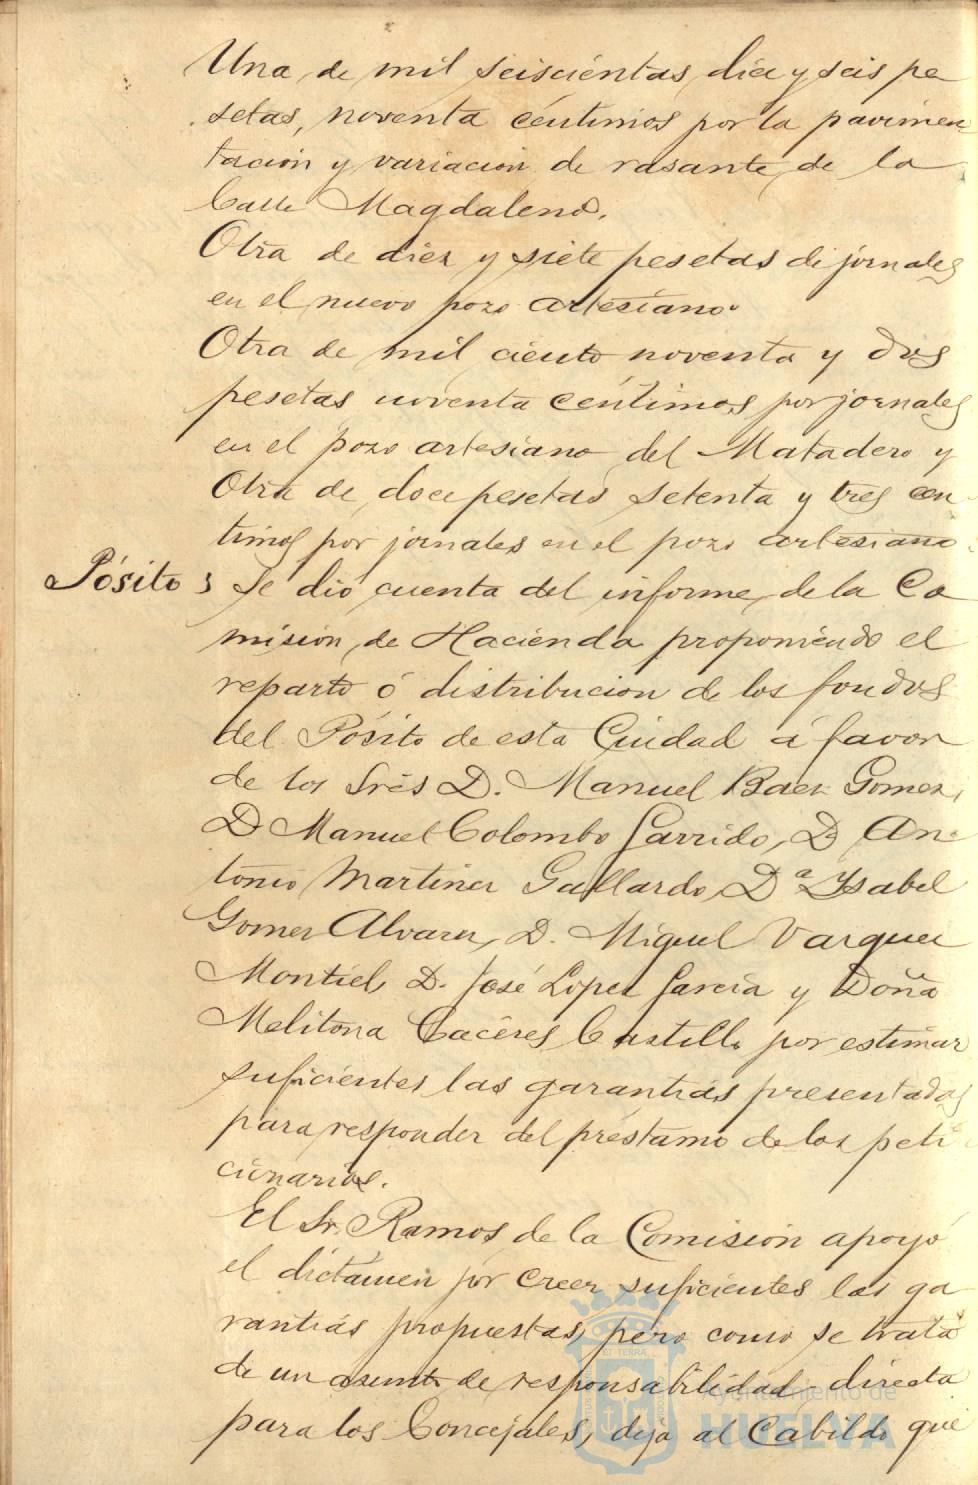 Una de mil seiscientas diez y seis pe
setas, noventa céntimos por la pavimen
tación y variación de rasante de la
Calle Magdalena.
Otra de diez y siete pesetas de jornales
en el nuevo pozo artesiano.
Otra de mil ciento noventa y dos
pesetas noventa céntimos por jornales
en el pozo artesiano del Matadero y
Otra de doce pesetas setenta y tres cen
timos por jornales en el pozo artesiano.
Pósito Se dió cuenta del informe de la Co
misión de Hacienda proponiendo el
reparto ó distribucion de los fondos
del Pósito de esta Ciudad á favor
de los Srés D. Manuel Baez Gomez,
D Manuel Colombo Garrido, D. An
tonio Martinez Gallardo, D.ª Ysabel
Gomez Alvarez, D. Miguel Vazquez
Montiel, D. José Lopez García y Doña
Melitona Cacéres Castillo por estimar
suficientes las garantías presentadas
para responder del préstamo de los peti
cionarios.
El Sr. Ramos de la Comisión apoyó
el dictámen por creer suficientes las ga
rantías propuestas, pero como se trata
de un asunto de responsabilidad directa
para los Concejales, deja al Cabildo que
Ayuntamiento de
HUELVA